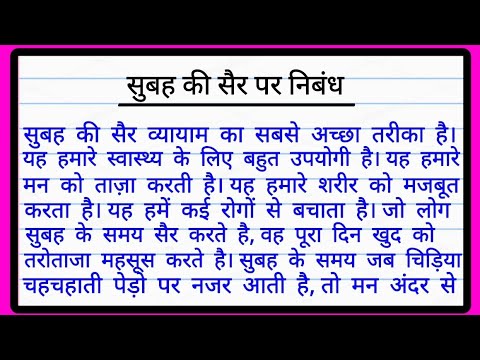 सुबह की सैर पर निबंध
सुबह की सैर व्यायाम का सबसे अच्छा तरीका है।
यह हमारे स्वास्थ्य के लिए बहुत उपयोगी है। यह हमारे
मन को ताज़ा करती है। यह हमारे शरीर को मजबूत
करता है। यह हमें कई रोगों से बचाता है। जो लोग
सुबह के समय सैर करते है, वह पूरा दिन खुद को
तरोताजा महसूस करते है। सुबह के समय जब चिड़िया
चहचहाती पेड़ो पर नजर आती है, तो मन अंदर से